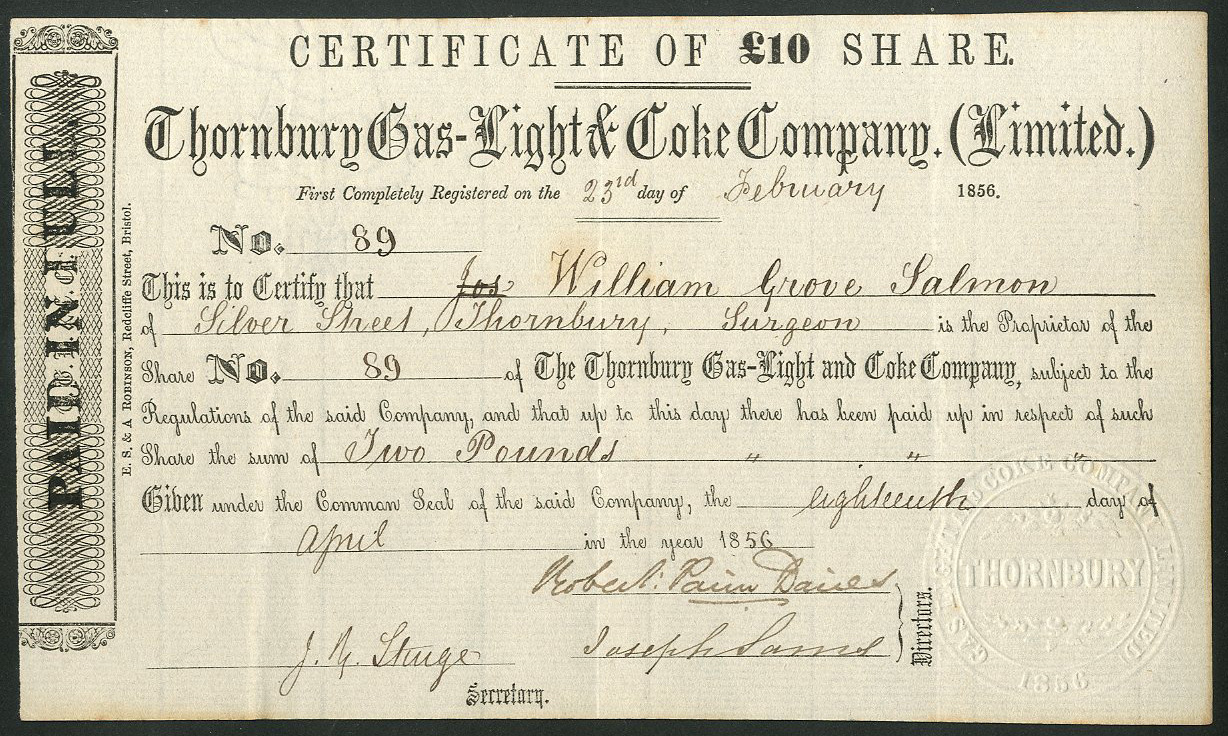 CERTIFICATE OF £10 SHARE.
Thornbury Gas-Light & Coke Company. (Limited.)
First Completely Registered on the 23rd day of February 1856.
No. 89
This is to Certify that Jos William Grove Salmon
of Silver Street, Thornbury, Surgeon is the Proprietor of the
Share No. 89 of The Thornbury Gas-Light and Coke Company, subject to the
Regulations of the said Company, and that up to this day there has been paid up in respect of such
Share the sum of Two Pounds " " "
Given under the Common Seal of the said Company, the eighteenth day of
April in the year 1856
Robert Davies
Joseph
Directors.
J. Y. Sturge
Secretary.
PAID IN FULL.
E. S. & A ROBINSON, Redcliffe Street, Bristol.
GAS LIGHT AND COKE COMPANY LIMITED
THORNBURY
1856